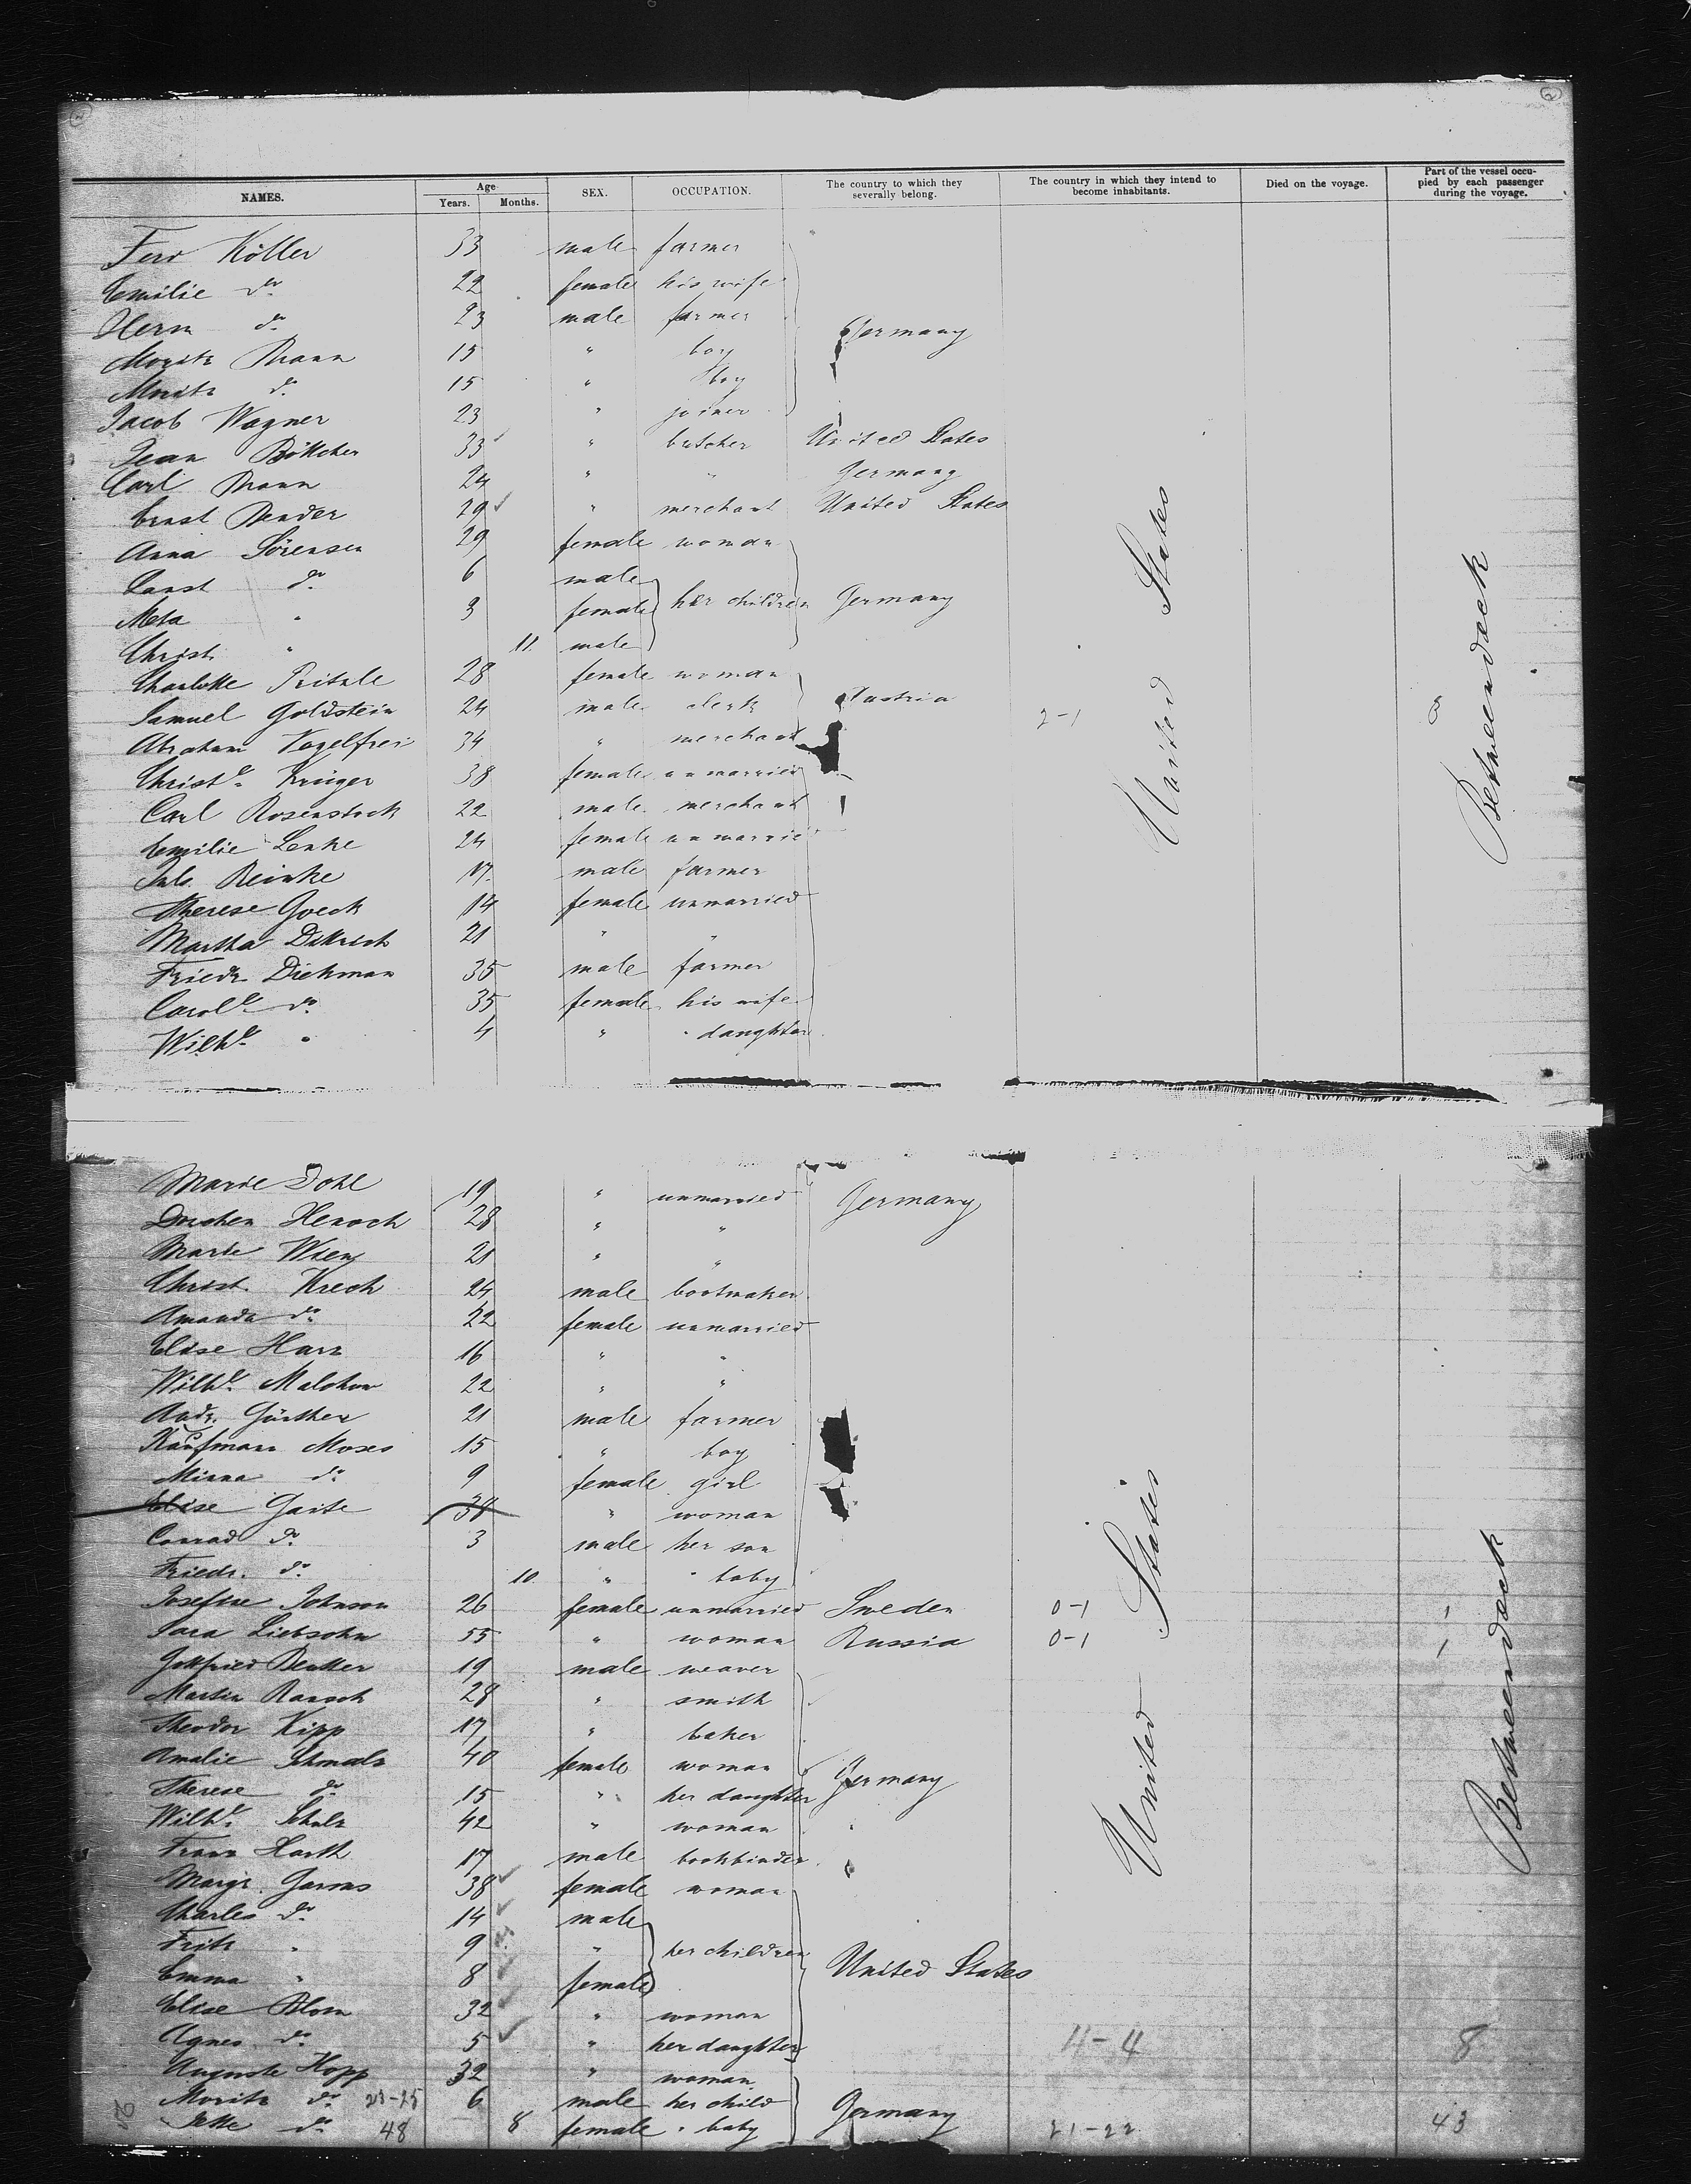 NAMES. Age Years. Months. SEX. OCCUPATION. The country to which they severally belong. The country in which they intend to become inhabitants. Died on the voyage. Part of the vessel occupied by each passenger during the voyage.
Ferd Köller 33 male farmer
Emilie do 22 female his wife
Herm do 23 male farmer Germany
Moritz Mann 15 " boy
Moritz do 15 " boy
Jacob Wagner 23 " joiner
Jean Böttcher 33 " butcher United States
Carl Mann 24 " " Germany
Ernst Bender 29 " merchant United States
Anna Sörensen 29 female woman
do 6 male
Meta " 3 female her children Germany
Christ. " 11. male
Charlotte 28 female woman
Samuel Goldstein 24 male clerk Austria 2-1 3
Abraham Vogelfrei 34 " merchant
Christe. Krüger 38 female unmarried
Carl Rosenstock 22 male merchant
Emilie Lenke 24 female unmarried
Reinke 17. male farmer
Therese Goeck 14 female unmarried
Martha Dittrich 21 " "
Friedr Diekman 35 male farmer
Carole do 35 female his wife
Wilhe. " 4 " " daughter
United States
Betweendeck
Marie Dohl 19 " unmarried Germany
Dorchen Henoch 28 " "
Marie 21 " "
Christ. Krech 24 male bootmaker
Amanda do 22 female unmarried
Elise Harz 16 " "
Wilhe. Malchow 22 " "
Andr. Günther 21 male farmer
Kaufmann Moses 15 " boy
Minna do 9 female girl
Elise Garte 38 " woman
Conrad do 3 male her son
Friedr. do 10. " " baby
Josefine Johnson 26 female unmarried Sweden 0-1 1
Sara Liebsohn 55 " woman Russia 0-1 1
Gottfried 19 male weaver
Martin Raasch 28 " smith
Theodor Kipp 17 " baker
Amalie Schmalz 40 female woman
Therese do 15 " her daughter Germany
Wilhe. Schulz 42 " woman
Franz Harth 17 male bookbinder
Margr. Garms 38 female woman
Charles do 14 male
Fritz " 9 " her children
Emma " 8 female United States
Elise Blom 32 " woman
Agnes do 5 " her daughter 11-4 8
Auguste Hopp 32 " woman
Moritz do 23-25 6 male her child Germany
do 48 8 female " baby 21-22 43
United States
Betweendeck